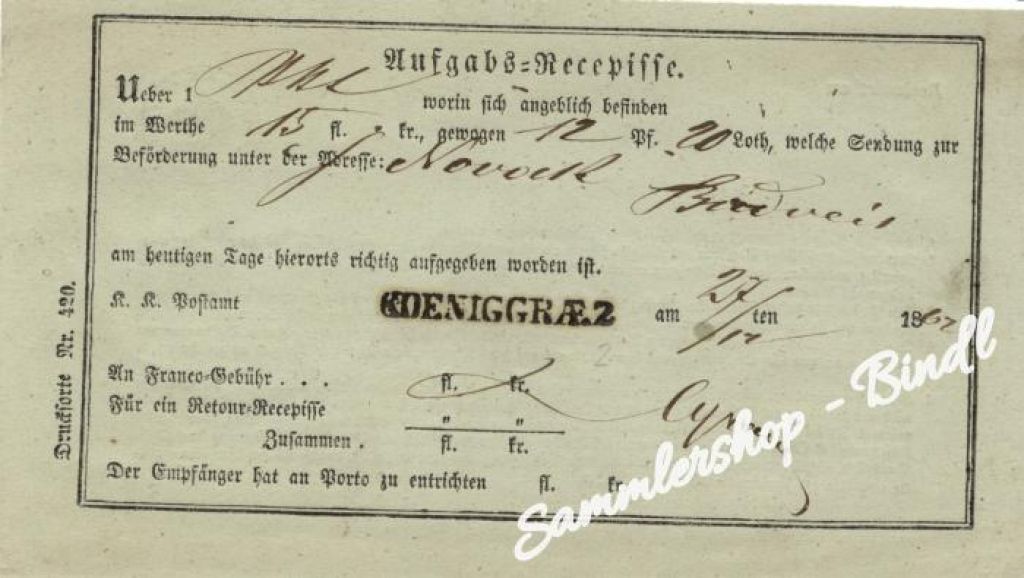 Aufgabs-Recepisse.
Ueber 1
worin sich angeblich befinden
im Werthe 15 fl. kr., gewogen 12 Pf. 20 Loth, welche Sendung zur
Beförderung unter der Adresse: J Novak
Budweis
am heutigen Tage hierorts richtig aufgegeben worden ist.
K. K. Postamt KOENIGGRÆ.2 am 27/ ten 1862
An Franco-Gebühr . . . fl. kr.
Für ein Retour-Recepisse „ „
Zusammen . fl. kr.
Der Empfänger hat an Porto zu entrichten fl. kr
Drucksorte Nr. 420.
Sammlershop - Bindl